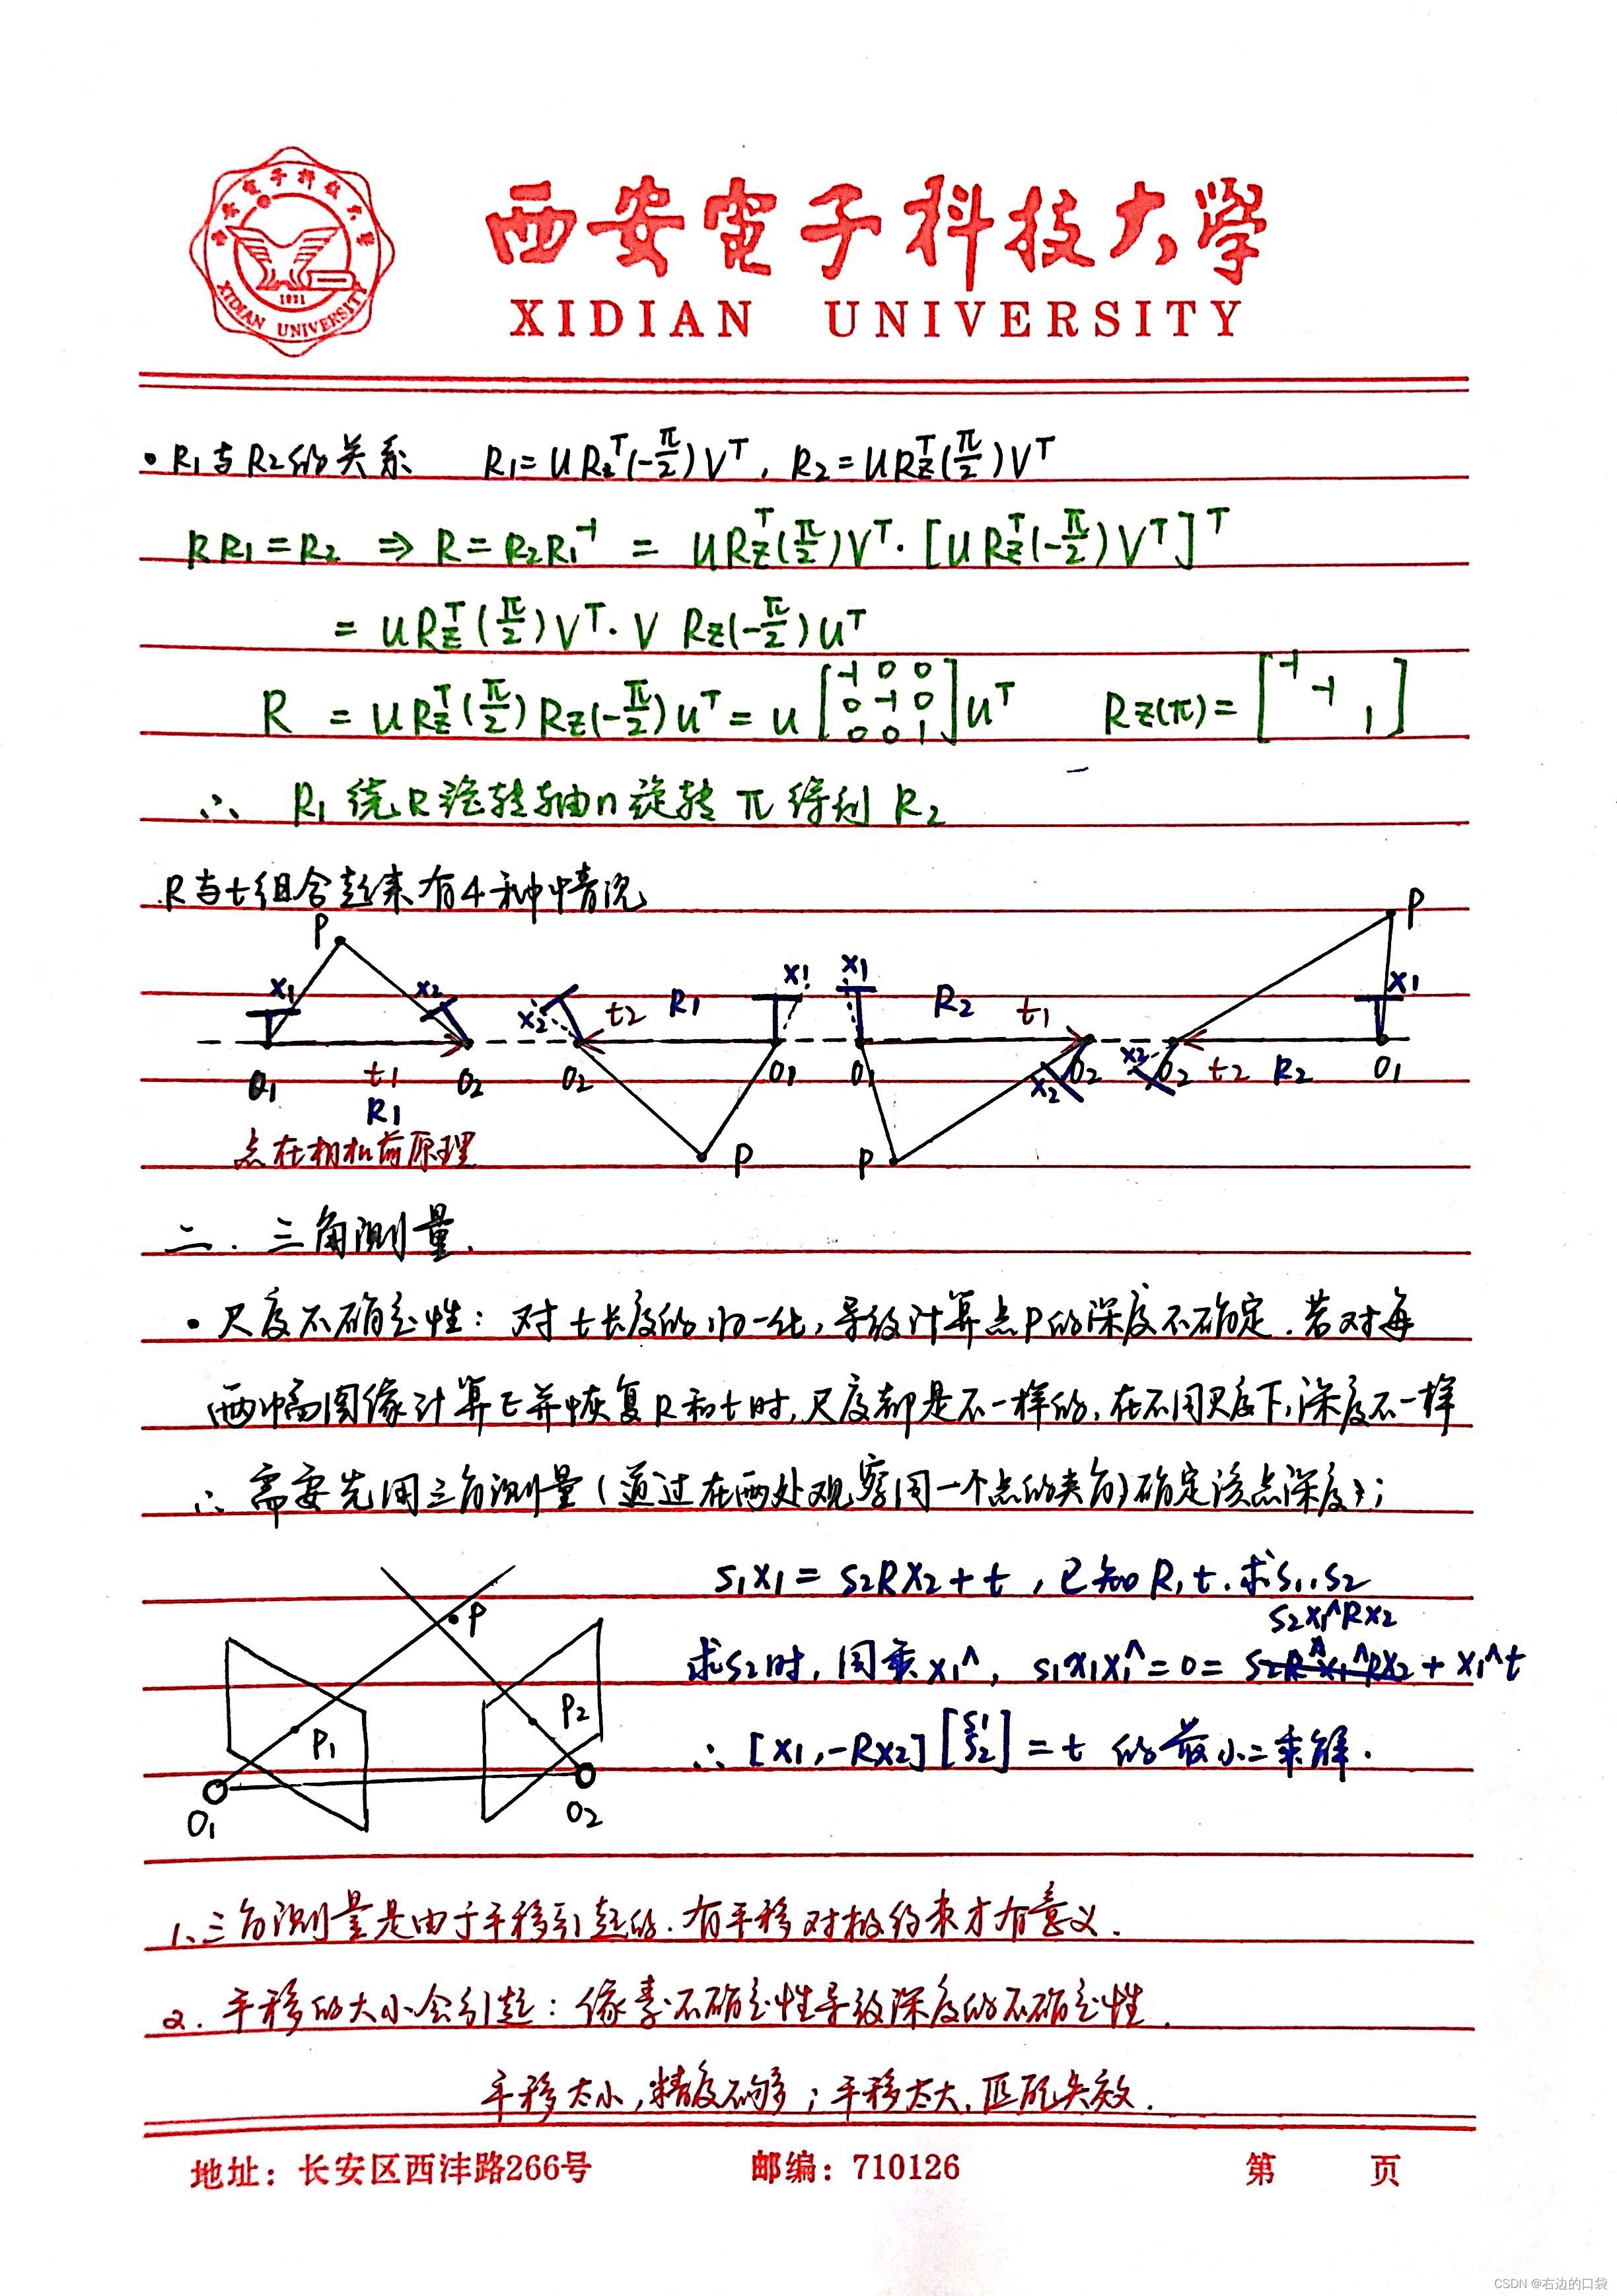 西安電子科技大學
XIDIAN UNIVERSITY
1931
XIDIAN UNIVERSITY
• R1与R2的关系 R1=URz^T(-π/2)V^T, R2=URz^T(π/2)V^T
RR1=R2 ⇒ R=R2R1^-1 = URz^T(π/2)V^T·[URz^T(-π/2)V^T]^T
= URz^T(π/2)V^T·V Rz(-π/2)U^T
R = URz^T(π/2)Rz(-π/2)U^T = U[-1 0 0; 0 -1 0; 0 0 1]U^T Rz(π)=[-1 -1 1]
∴ R1绕R旋转轴n旋转π得到R2
R与t组合起来有4种情况
P P
x1 x2 x2 t2 R1 x1 x1 R2 t1 x1
O1 t1 O2 O2 O1 O1 x2 O2 x2 O2 t2 R2 O1
R1
点在相机前原理 P P
二. 三角测量.
• 尺度不确定性: 对t长度的归一化, 导致计算点P的深度不确定. 若对每
两幅图像计算E并恢复R和t时, 尺度都是不一样的, 在不同尺度下, 深度不一样
∴ 需要先用三角测量(通过在两处观察同一个点的夹角)确定该点深度;
s1x1 = s2Rx2+t, 已知R,t. 求s1,s2
s2x1^Rx2
求s2时, 同乘x1^, s1x1x1^=0= + x1^t
∴ [x1,-Rx2][s1 s2]=t 的最小二乘解.
P
P1 P2
O1 O2
1、三角测量是由于平移引起的. 有平移对极约束才有意义.
2. 平移的大小会引起: 像素不确定性导致深度的不确定性.
平移太小, 精度不够; 平移太大, 匹配失效.
地址: 长安区西沣路266号 邮编: 710126 第 页
CSDN @右边的口袋